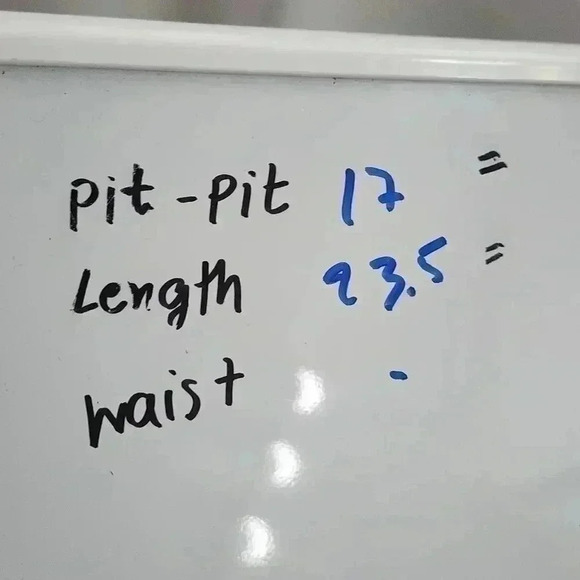 pit - pit 17 "
Length 23.5 "
waist -